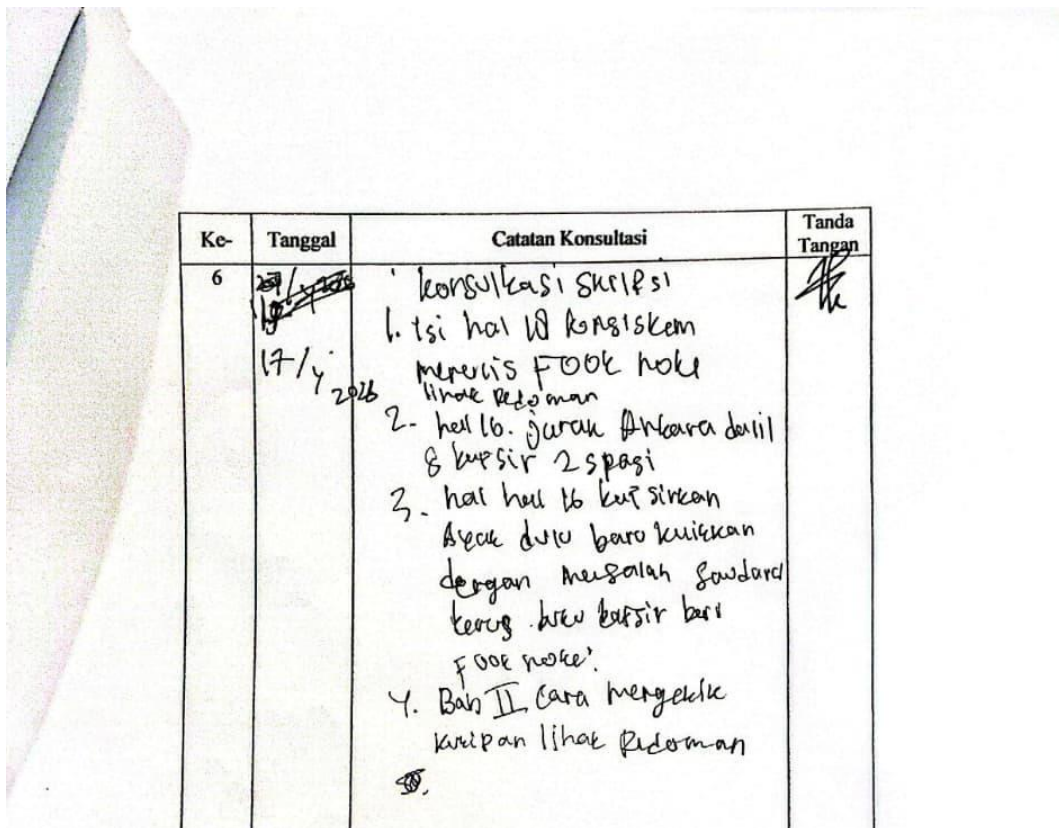 Ke- Tanggal Catatan Konsultasi Tanda Tangan
6
17/4 2026
konsultasi skripsi
1. Isi hal 10 konsisten
menulis FOOT note
lihat pedoman
2. hal 16. jarak Antara dalil
& tafsir 2 spasi
3. hal hal 16 tafsirkan
Ayat dulu baru kaitkan
dengan masalah saudara
terus buku tafsir beri
FOOT note.
4. Bab II cara mengetik
kutipan lihat Pedoman